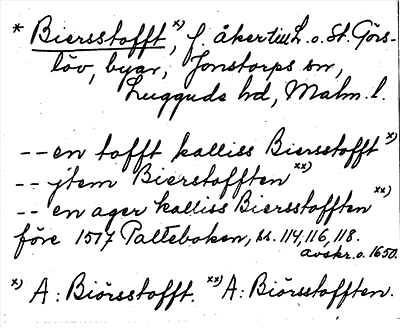 * Biersstofft, x) f. åker till L. o. St. Görs-
löv, byar, Jonstorps sn,
Luggude hd, Malm. l.
-- en tofft kalliss Biersstofft x)
-- jtem Bierstofften xx)
-- en ager kalliss Biersstofften xx)
före 1517 Palteboken, ss. 114, 116, 118.
avskr. o. 1650.
x) A: Biörsstofft. xx) A: Biörsstofften.